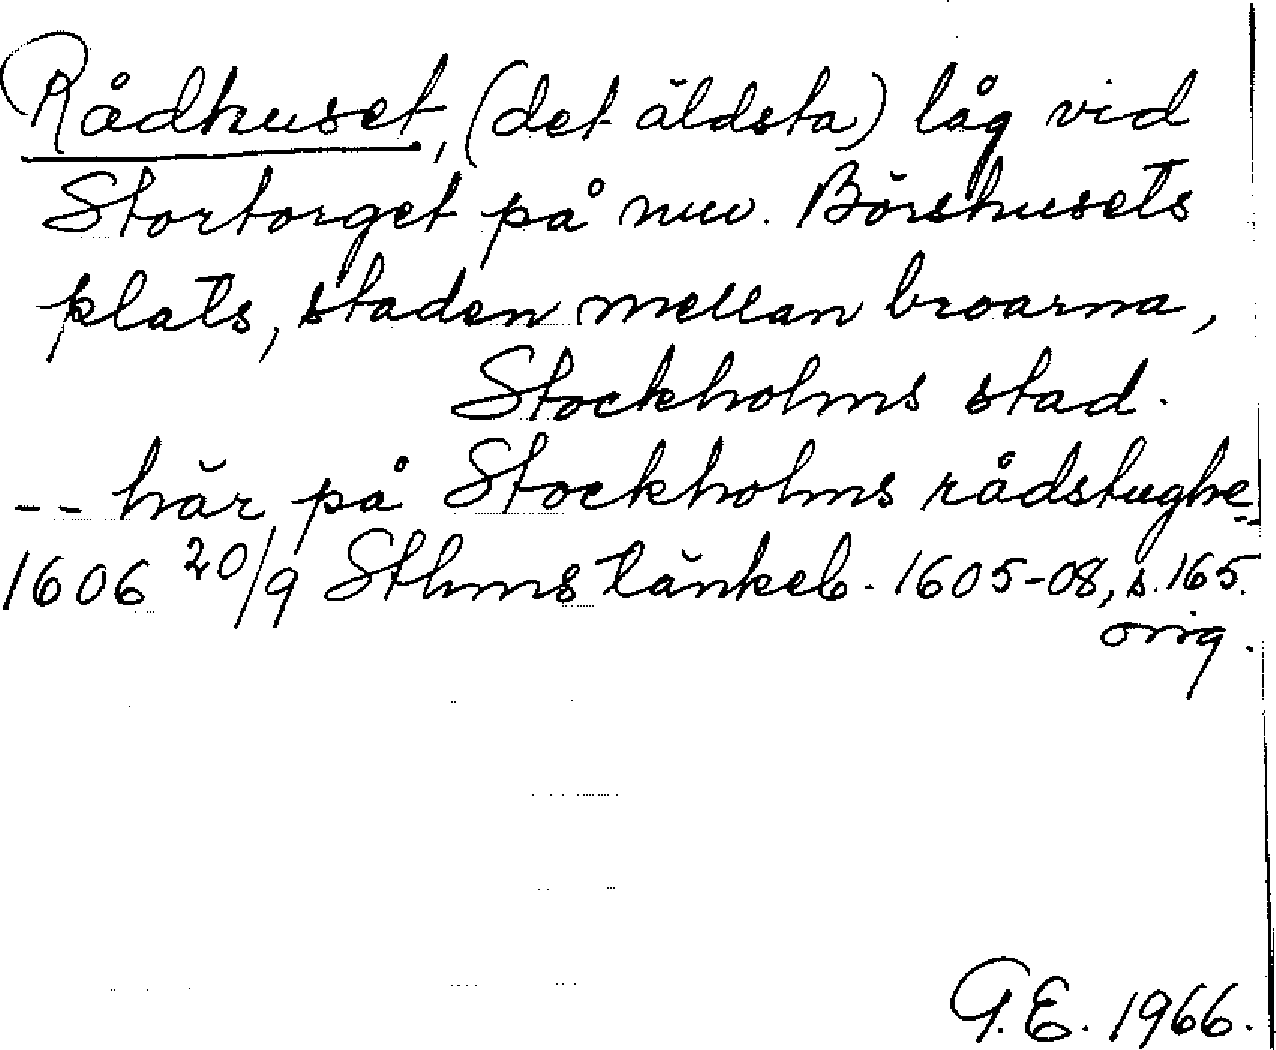 Rådhuset, (det äldsta) låg vid
Stortorget på nuv. Börshusets
plats, staden mellan broarna,
Stockholms stad.
-- här på Stockholms rådstughe --
1606 20/9 Sthms tänkeb. 1605-08, s. 165.
orig.
G.E. 1966.